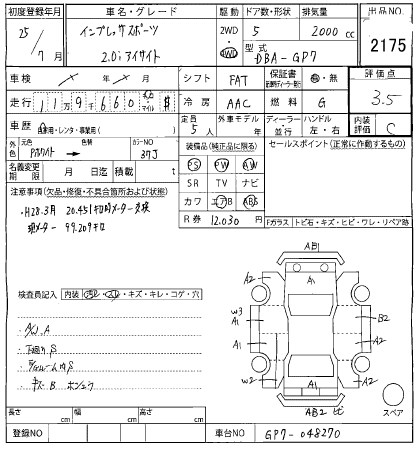 初度登録年月
車名・グレード
駆動
ドア数・形状
排気量
出品NO.
25
年
7月
インプレッサスポーツ
2.0i アイサイト
2WD
4WD
5
2000 cc
型式
DBA-GP7
2175
車検
年
月
シフト
FAT
保証書
有・無
評価点
3.5
走行
11万9千660
マイル
$
冷房
AAC
燃料
G
車歴
自家用・レンタ・事業用( )
定員
5人
外車モデル
年
ディーラー・並行
ハンドル
左・右
内装評価
C
外色
元色
パールホワイト
色替
カラーNO
37J
装備品(純正品に限る)
セールスポイント(正常に作動するもの)
名義変更期限
月 日迄
積載
t
PS PW AW
SR TV ナビ
カワ エアB ABS
注意事項(欠品・修復・不具合箇所および状態)
R券
12,030円
・H28.3月 20.451キロ時メーター交換
現メーター 99.209キロ
Fガラス
トビ石・キズ・ヒビ・ワレ・リペア跡
検査員記入
内装
汚レ・スレ・キズ・キレ・コゲ・穴
・下廻りS
・キズB
AB1
A2
A2
W3
A1
A1
B2
A2
W2
A1
AB2
スペア
長さ
cm
幅
cm
高さ
cm
登録NO
車台NO
GP7-048270